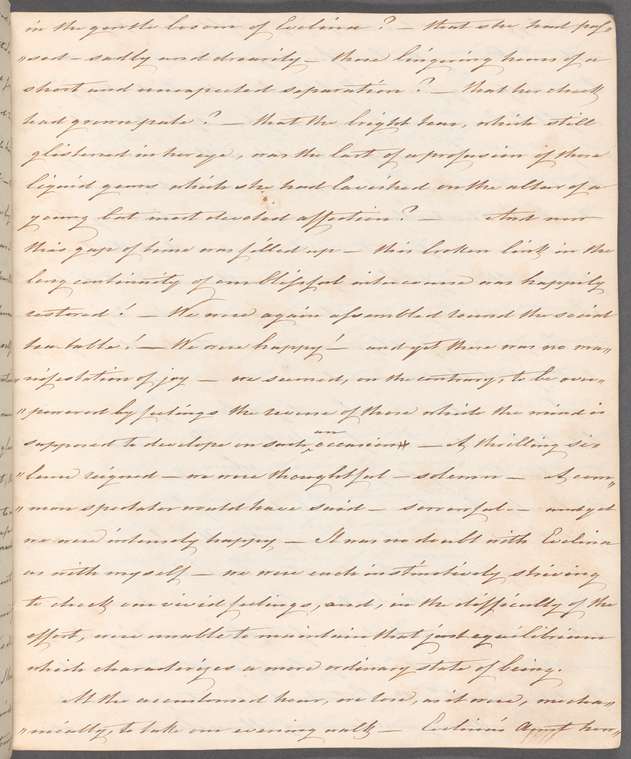 in the gentle bosom of Evelina? — that she had pas„
„sed — sadly and drearily — those lingering hours of a
short and unexpected separation? — that her cheek
had grown pale? — that the bright tear, which still
glistened in her eye, was the last of a profusion of those
liquid gems which she had lavished on the altar of a
young but most devoted affection? — And now
this gap of time was filled up — this broken link in the
long continuity of our blissful intercourse was happily
restored! — We were again assembled round the social
tea table! — We were happy! — and yet there was no ma„
„nifestation of joy — we seemed, on the contrary, to be over„
„powered by feelings the reverse of those which the mind is
supposed to develope on such an occasion — A thrilling si„
„lence reigned — we were thoughtful — solemn — A com„
„mon spectator would have said — sorrowful — and yet
we were intensely happy — It was no doubt with Evelina
as with myself — we were each instinctively striving
to check our vivid feelings, and, in the difficulty of the
effort, were unable to maintain that just equilibrium
which characterizes a more ordinary state of being.
At the accustomed hour, we rose, as it were, mecha„
„nically, to take our evening walk — Evelina's Aunt how„